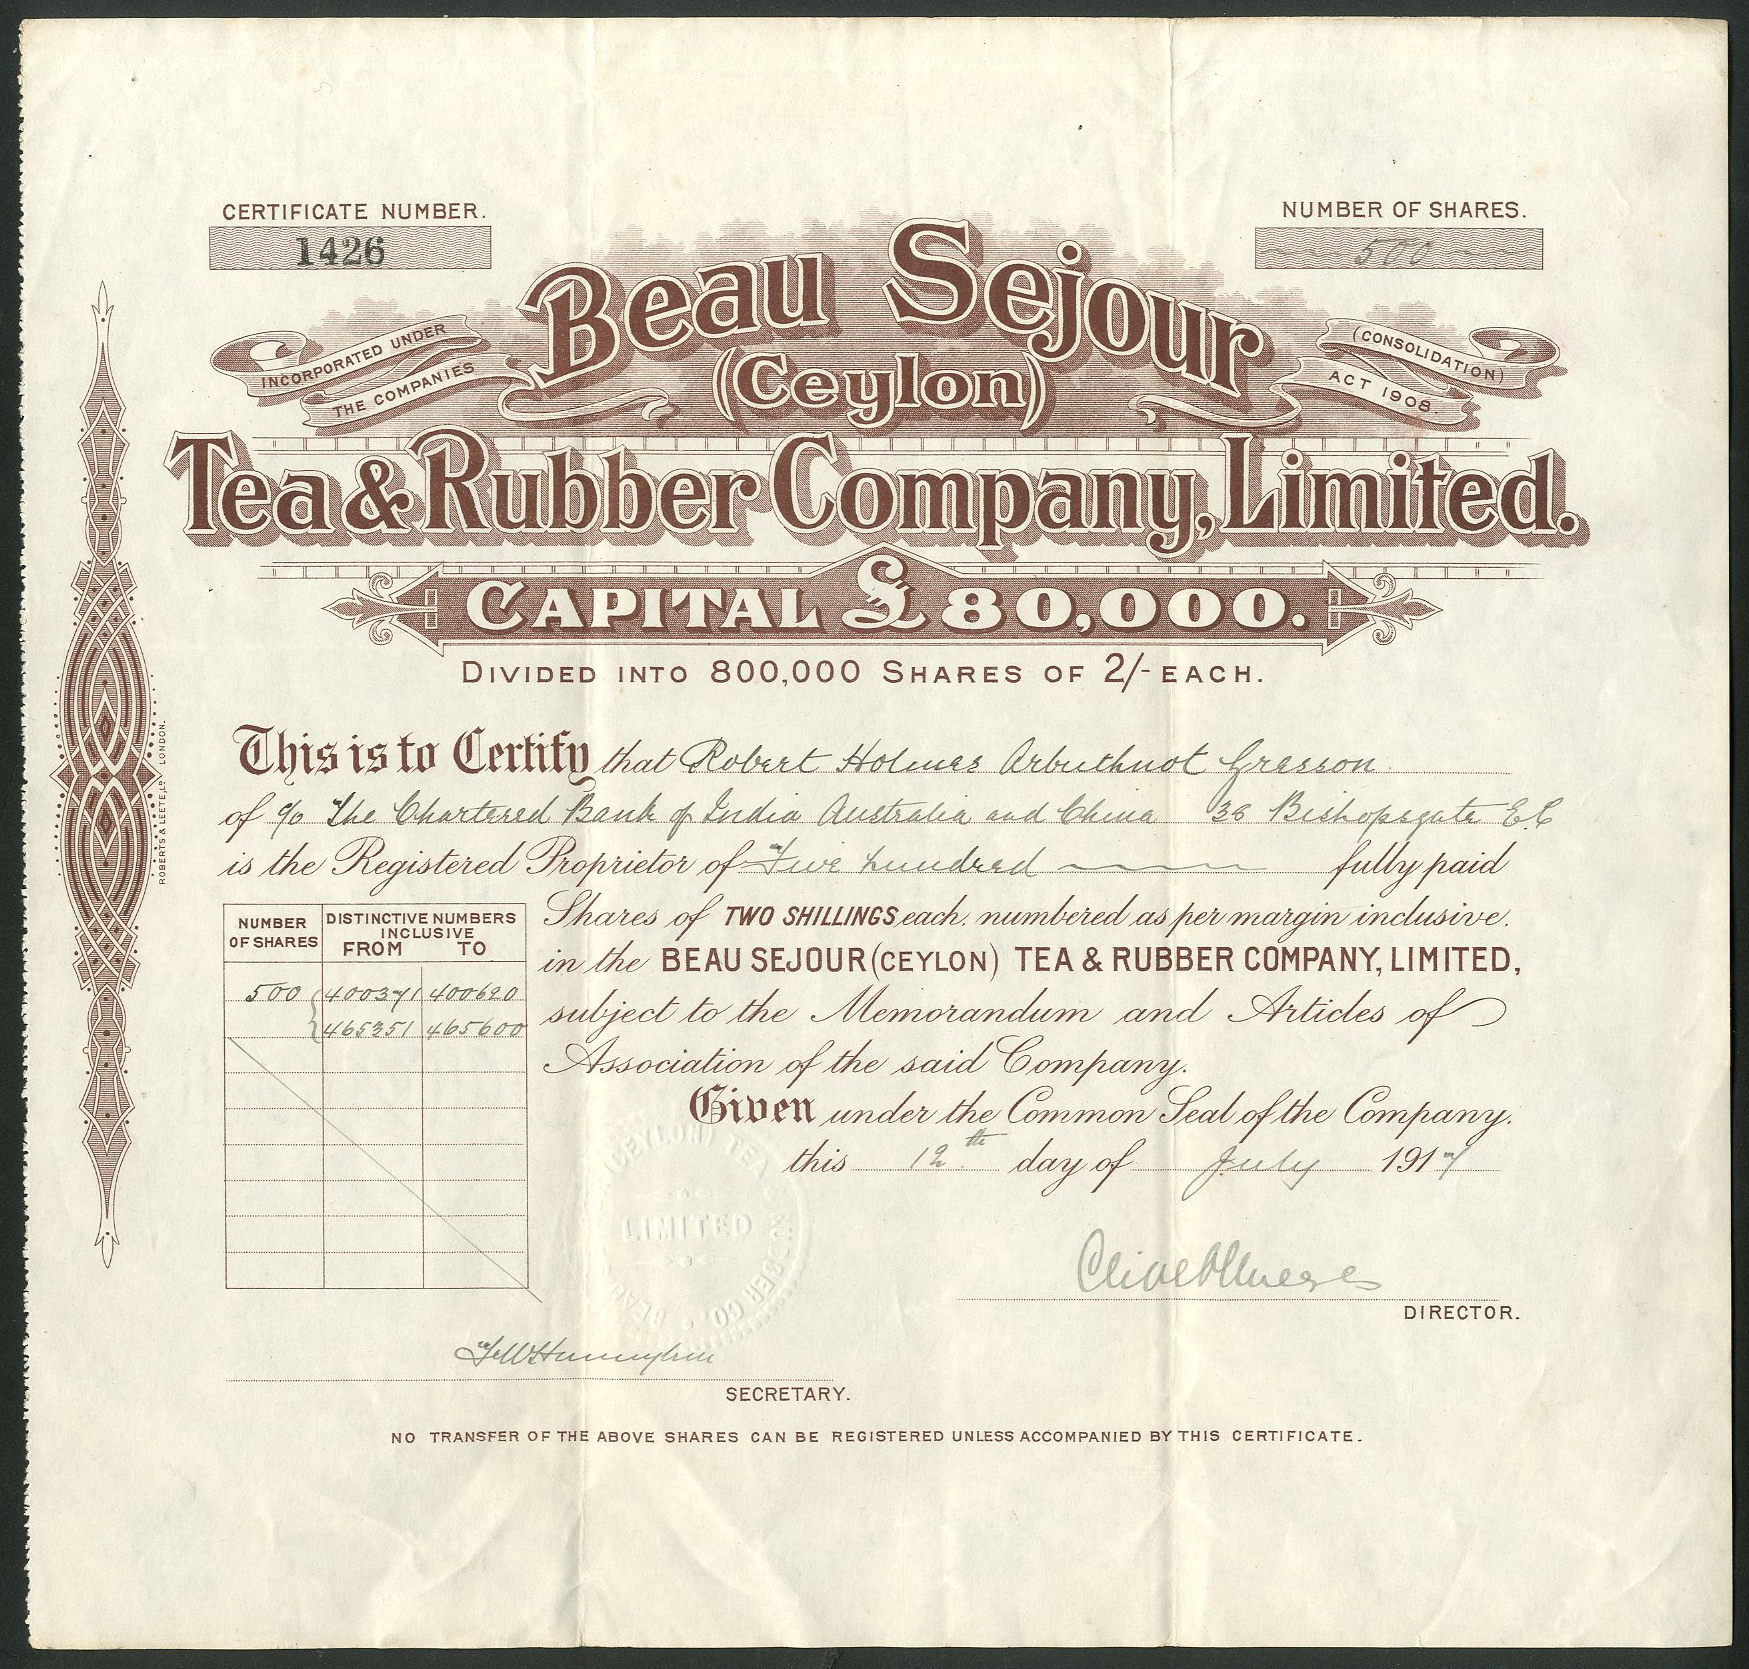 CERTIFICATE NUMBER.
1426
NUMBER OF SHARES.
500
INCORPORATED UNDER
THE COMPANIES
(CONSOLIDATION)
ACT 1908.
Beau Sejour
(Ceylon)
Tea & Rubber Company, Limited.
CAPITAL £80,000.
DIVIDED INTO 800,000 SHARES OF 2/- EACH.
This is to Certify that Robert Holmes Arbuthnot Gresson
of c/o The Chartered Bank of India Australia and China 38 Bishopsgate E.C
is the Registered Proprietor of Five hundred fully paid
NUMBER OF SHARES
DISTINCTIVE NUMBERS INCLUSIVE
FROM TO
500 400371 400620
465351 465600
Shares of TWO SHILLINGS each, numbered as per margin inclusive.
in the BEAU SEJOUR (CEYLON) TEA & RUBBER COMPANY, LIMITED,
subject to the Memorandum and Articles of
Association of the said Company.
Given under the Common Seal of the Company.
this 12th day of July 1917
DIRECTOR.
SECRETARY.
NO TRANSFER OF THE ABOVE SHARES CAN BE REGISTERED UNLESS ACCOMPANIED BY THIS CERTIFICATE.
ROBERTS & LEETE, LD LONDON.
BEAU (CEYLON) TEA RUBBER CO.
LIMITED